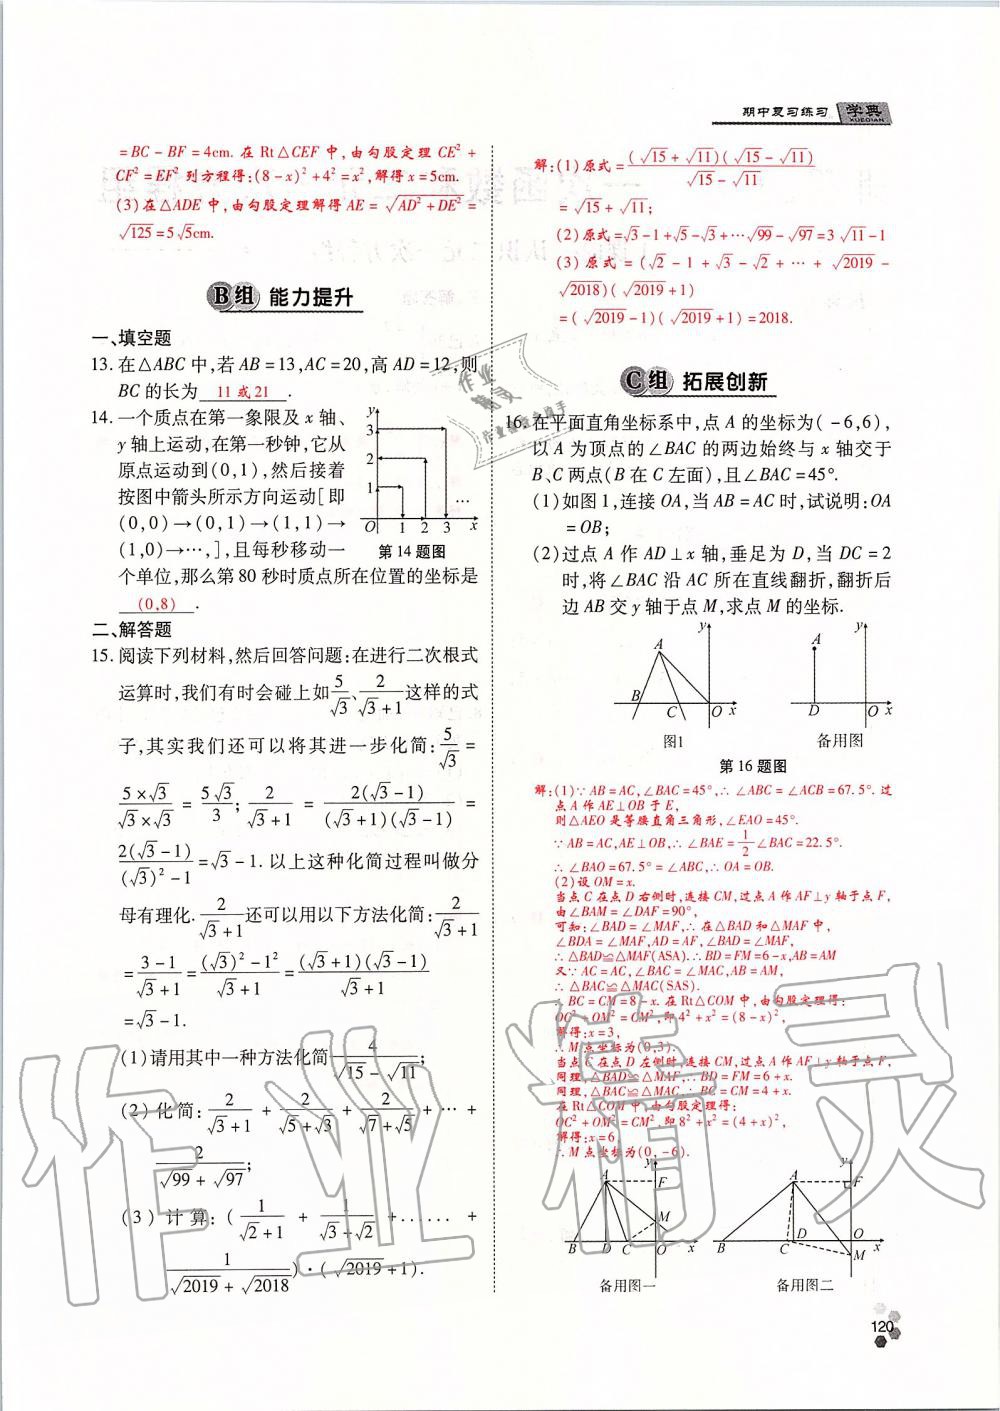 期中复习练习 学典
XUEDIAN
=BC-BF=4cm. 在 Rt△CEF 中,由勾股定理 CE²+
CF²=EF² 列方程得:(8-x)²+4²=x²,解得 x=5cm.
(3)在△ADE 中,由勾股定理解得 AE=√(AD²+DE²)=
√125=5√5cm.
B组 能力提升
一、填空题
13.在△ABC 中,若 AB=13,AC=20,高 AD=12,则
BC 的长为 11 或 21 .
14.一个质点在第一象限及 x 轴、
y 轴上运动,在第一秒钟,它从
原点运动到(0,1),然后接着
按图中箭头所示方向运动[即
(0,0)→(0,1)→(1,1)→
(1,0)→…,],且每秒移动一
个单位,那么第 80 秒时质点所在位置的坐标是
(0,8) .
y
3
2
1
O 1 2 3 x
…
第 14 题图
二、解答题
15.阅读下列材料,然后回答问题:在进行二次根式
运算时,我们有时会碰上如 5/√3、2/(√3+1) 这样的式
子,其实我们还可以将其进一步化简:5/√3=
(5×√3)/(√3×√3)=5√3/3;2/(√3+1)=2(√3-1)/((√3+1)(√3-1))=
2(√3-1)/((√3)²-1)=√3-1. 以上这种化简过程叫做分
母有理化.2/(√3+1)还可以用以下方法化简:2/(√3+1)
=(3-1)/(√3+1)=((√3)²-1²)/(√3+1)=(√3+1)(√3-1)/(√3+1)
=√3-1.
(1)请用其中一种方法化简 4/(√15-√11);
(2)化简:2/(√3+1)+2/(√5+√3)+2/(√7+√5)+…+
2/(√99+√97);
(3)计算:(1/(√2+1)+1/(√3+√2)+……+
1/(√2019+√2018))·(√2019+1).
解:(1)原式=4(√15+√11)(√15-√11)/(√15-√11)
=√15+√11;
(2)原式=√3-1+√5-√3+…√99-√97=3√11-1
(3)原式=(√2-1+√3-√2+…+√2019-
√2018)(√2019+1)
=(√2019-1)(√2019+1)=2018.
C组 拓展创新
16.在平面直角坐标系中,点 A 的坐标为(-6,6),
以 A 为顶点的∠BAC 的两边始终与 x 轴交于
B、C 两点(B 在 C 左面),且∠BAC=45°.
(1)如图 1,连接 OA,当 AB=AC 时,试说明:OA
=OB;
(2)过点 A 作 AD⊥x 轴,垂足为 D,当 DC=2
时,将∠BAC 沿 AC 所在直线翻折,翻折后
边 AB 交 y 轴于点 M,求点 M 的坐标.
y
A
B C O x
图1
y
A
D O x
备用图
第 16 题图
解:(1)∵AB=AC,∠BAC=45°,∴∠ABC=∠ACB=67.5°. 过
点 A 作 AE⊥OB 于 E,
则△AEO 是等腰直角三角形,∠EAO=45°.
∵AB=AC,AE⊥OB,∴∠BAE=1/2∠BAC=22.5°.
∴∠BAO=67.5°=∠ABC,∴OA=OB.
(2)设 OM=x.
当点 C 在点 D 右侧时,连接 CM,过点 A 作 AF⊥y 轴于点 F,
由∠BAM=∠DAF=90°,
可知:∠BAD=∠MAF,∴在△BAD 和△MAF 中,
∠BDA=∠MAF,AD=AF,∠BAD=∠MAF,
∴△BAD≌△MAF(ASA).∴BD=FM=6-x,AB=AM
又∵AC=AC,∠BAC=∠MAC,AB=AM,
∴△BAC≌△MAC(SAS).
∴BC=CM=8-x. 在 Rt△COM 中,由勾股定理得:
OC²+OM²=CM²,即 4²+x²=(8-x)²,
解得:x=3,
∴M 点坐标为(0,3).
当点 C 在点 D 左侧时,连接 CM,过点 A 作 AF⊥y 轴于点 F,
同理,△BAD≌△MAF,∴BD=FM=6+x.
同理,△BAC≌△MAC,∴BC=CM=4+x.
在 Rt△COM 中,由勾股定理得:
OC²+OM²=CM²,即 8²+x²=(4+x)²,
解得:x=6
∴M 点坐标为(0,-6).
y
A F
M
B D C O x
备用图一
y
A F
B C D O x
M
备用图二
120
作业精灵
作业精灵
作业帮拿助手